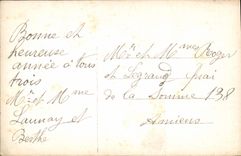 Bonne et
heureuse
année à tous
trois
Mr et Mme
Launay et
Berthe
Mr et Mme Roger
et Legrand Quai
de la Somme 138
Amiens